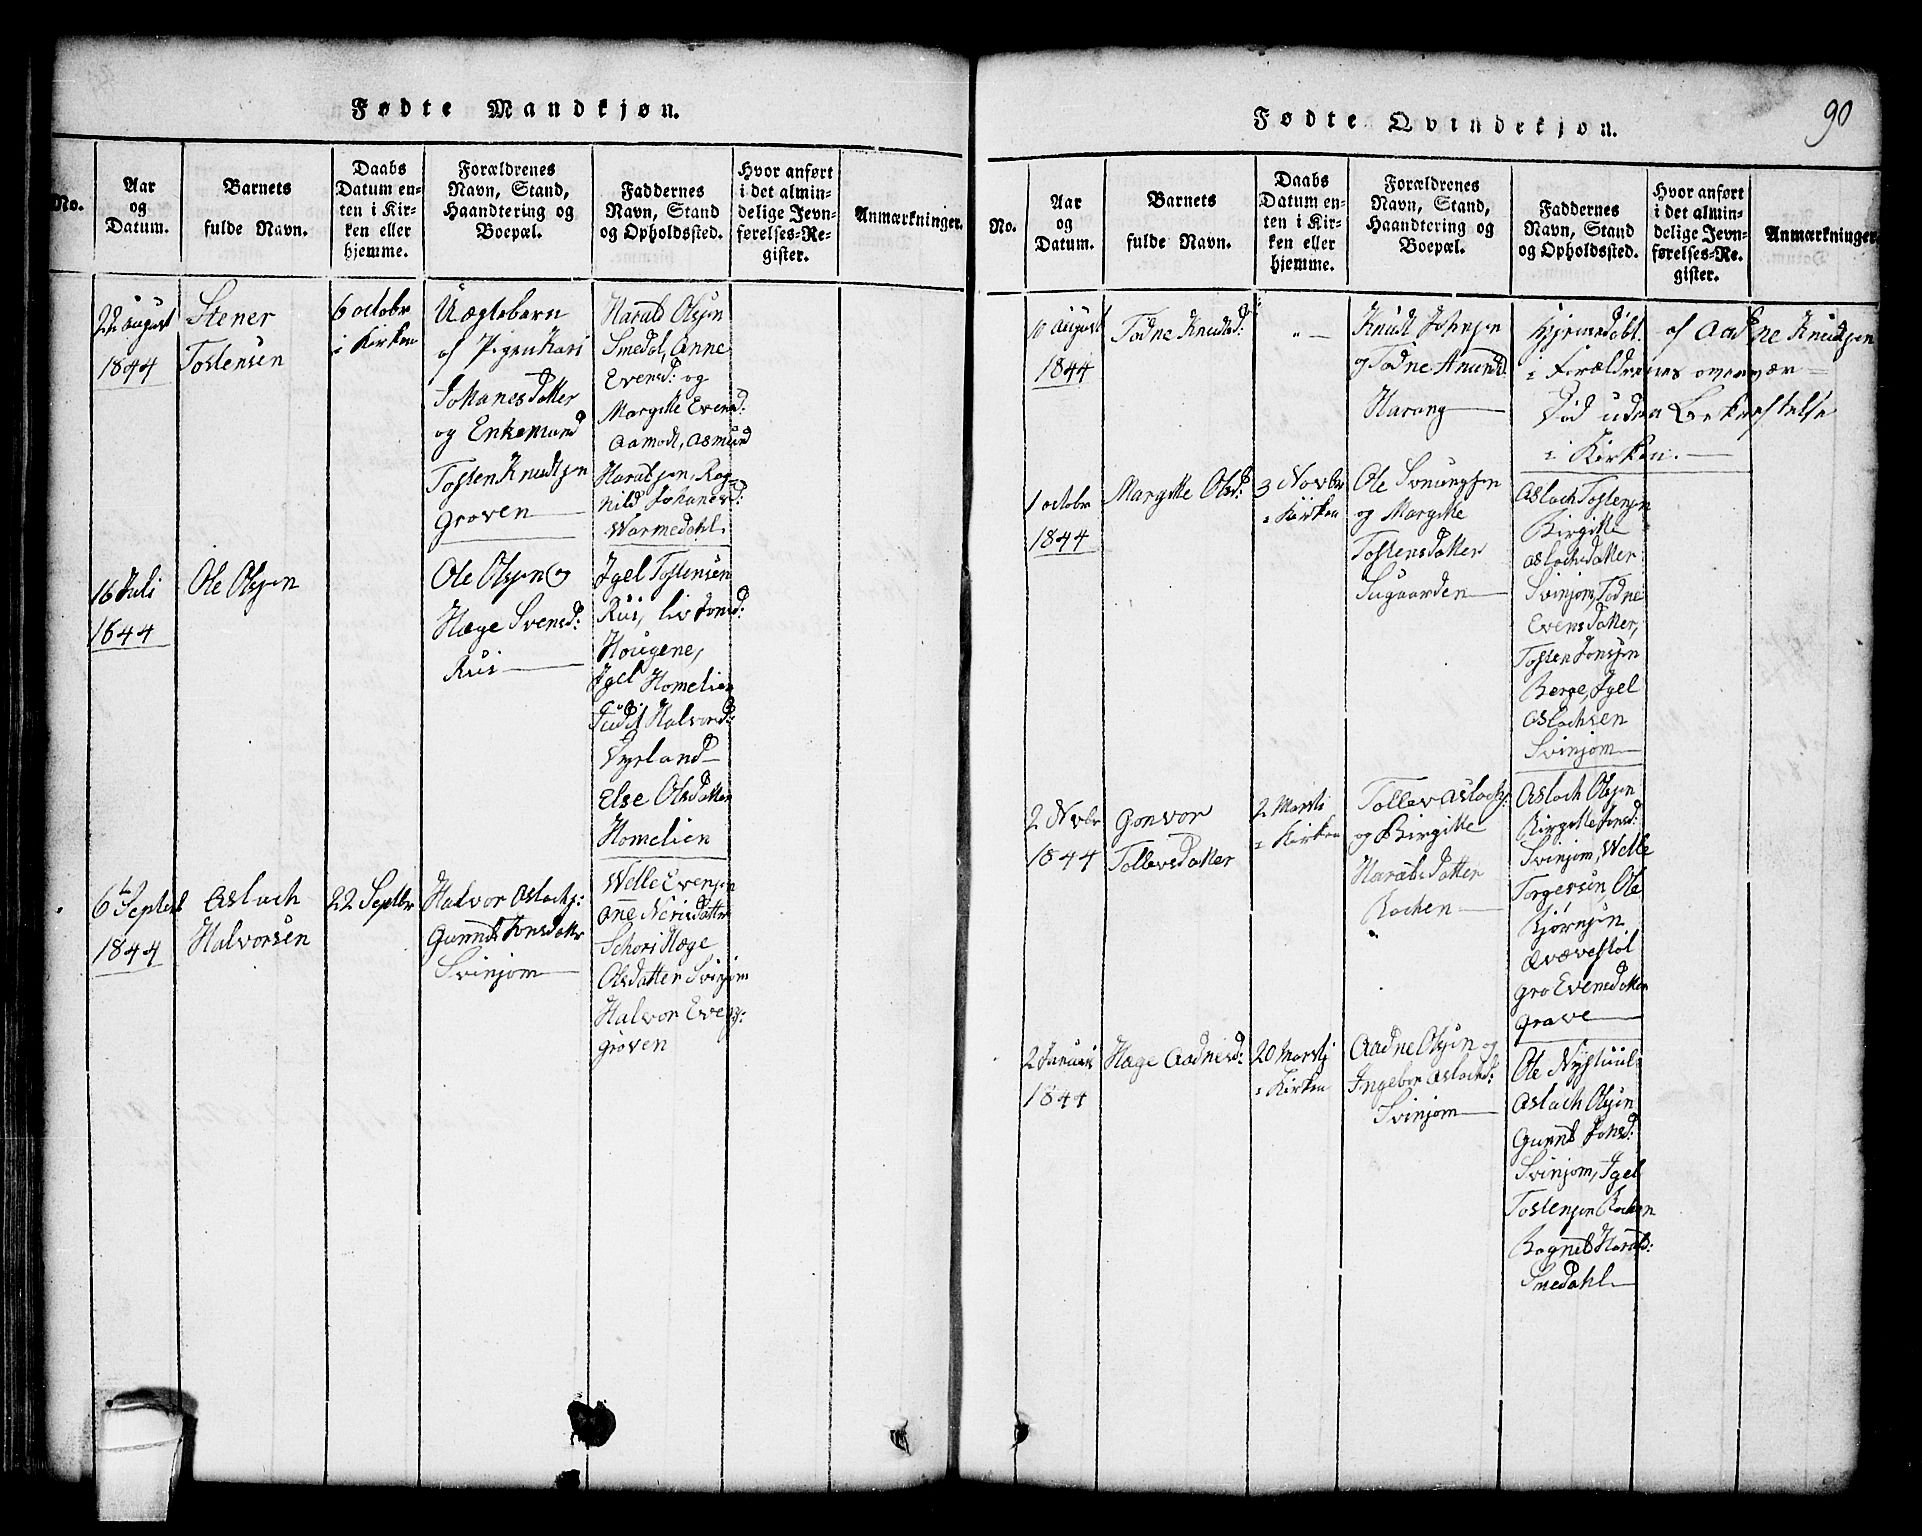 Fødte Mandkjøn.
No.
Aar
og
Datum.
Barnets
fulde Navn.
Daabs
Datum en-
ten i Kir-
ken eller
hjemme.
Forældrenes
Navn, Stand,
Haandtering og
Boepæl.
Faddernes
Navn, Stand
og Opholdssted.
Hvor anført
i det almin-
delige Jevn-
førelses-Re-
gister.
Anmærkninger.
22 August
1844
Stener
Tostensen
6 octobr
i Kirken
Uægtebarn
af Pigen Kari
Johanesdatter
og Enkemand
Tosten Knudsen
Groven
Harald Olsen
Smedal, Anne
Evensd: og
Margitte Evensd:
Aamodt, Asmund
Haralsen, Rag-
nild Johanesd:
Warmedahl.
16 Juli
1844
Ole Olsen
Ole Olsen og
Hæge Svensd:
Rui
Igel Tostensen
Rui, Liv Jonsd:
Hougene,
Igel Homelien
Judit Halvorsd:
Dyrland
Else Olsdatter
Homelien
6 Septebr
1844
Aslach
Halvorsen
22 Septbr
Halvor Aslachs:
Gunnil Jonsdattr
Svinjom
Welle Evensen
Ane Nerisdatter
Schori Hæge
Olsdatter Svinjom
Halvor Evens:
Groven
90
Fødte Qvindekjøn.
No.
Aar
og
Datum.
Barnets
fulde Navn.
Daabs
Datum en-
ten i Kir-
ken eller
hjemme.
Forældrenes
Navn, Stand,
Haandtering og
Boepæl.
Faddernes
Navn, Stand
og Opholdssted.
Hvor anført
i det almin-
delige Jevn-
førelses-Re-
gister.
Anmærkninger
10 August
1844
Todne Knudsd:
"—
Knudt Johnsen
og Todne Anundsd:
Harang
Hjemmedøbt af Aadne Knudsen
i Forældrenes overvær—
Død uden Bekræftelse
i Kirken.
1 octobr
1844
Margitte Olsd:
3 Novbr
i Kirken
Ole Svenungsen
og Margitte
Tostensdatter
Sugaarden
Aslach Tostensen
Birgitte
Aslachsdatter
Svinjom, Todne
Evensdatter,
Tosten Jonsen
Berge, Igel
Aslachsen
Svinjom
2 Novbr
1844
Gonvor
Tollevsdatter
2 Martsi
i Kirken
Tollev Aslachs:
og Birgitte
Haraldsdatter
Rochen
Aslach Olsen
Birgitte Jonsd:
Svinjom, Welle
Torgersen Ole
Bjørnsen
Qvævestøl
Gro Evensdatter
Grave
2 Januari
1844
Hæge Aadnesd:
20 Martsj
i Kirken
Aadne Olsen og
Ingebor Aslachsd:
Svinjom
Ole Nystuul
Aslach Olsen
Gunnil Jonsd:
Svinjom, Igel
Tostensen Rochen
Ragnil Haralds:
Smedahl